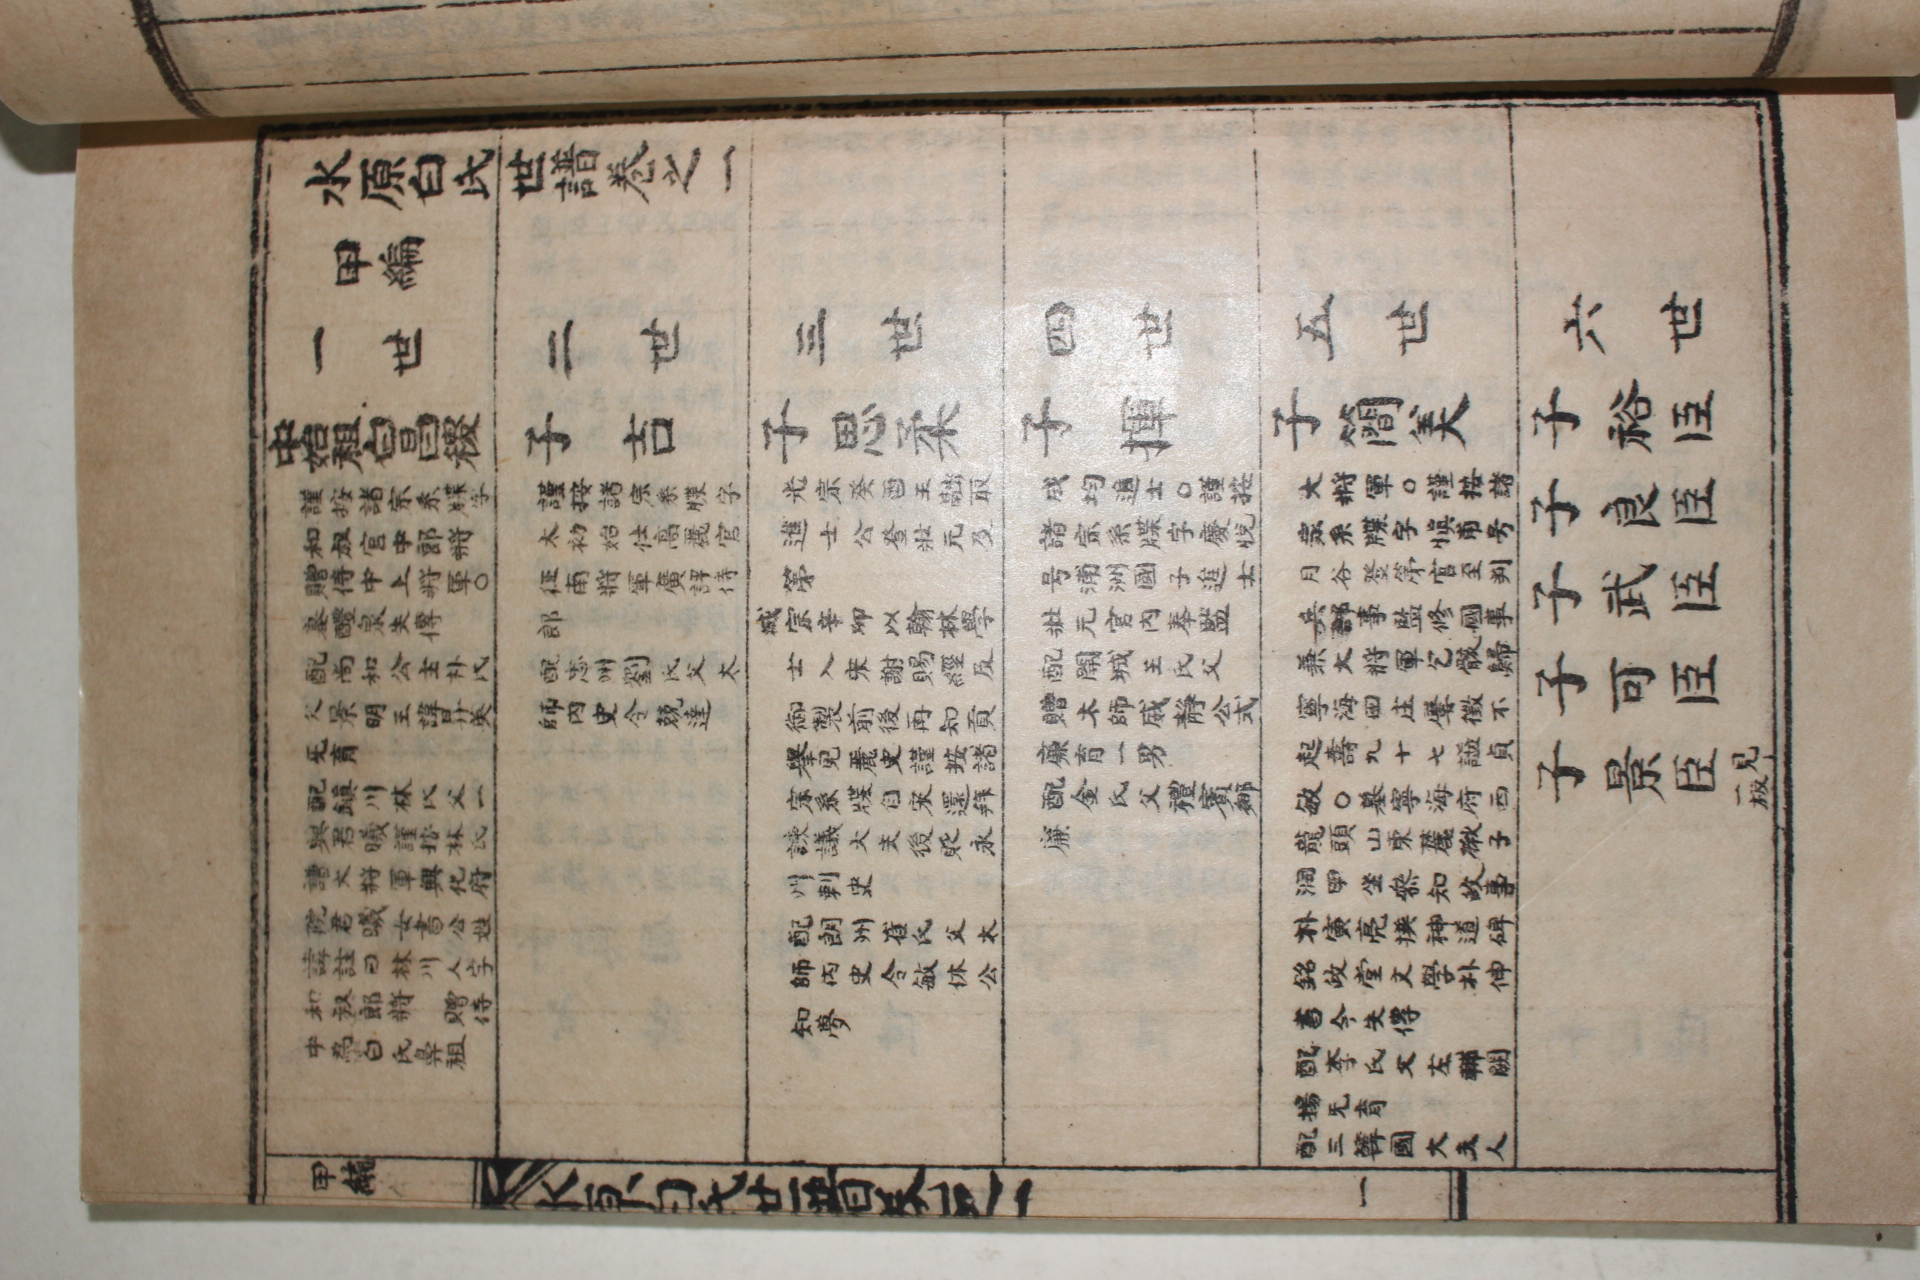 水原白氏世譜卷之一
甲編
一世
中始祖白昌稷
謹按諸宗系牒字
和叔官中郎將
贈侍中上將軍○
墓醴泉失傳
配尚和公主朴氏
父景明王諱昇英
无育
配鎭川林氏父一
興君曦謹按林氏
譜大將軍興化府
院君曦女書公姓
諱註曰林川人字
和叔郎將 贈侍
中為白氏鼻祖
二世
子吉
謹按諸宗系牒字
太初始仕高麗官
征南將軍廣評侍
郎
配忠州劉氏父太
師內史令兢達
三世
子思柔
光宗癸酉王融取
進士公登壯元及
第
成宗辛卯以翰林學
士入宋謝賜經及
御製前後再知貢
擧見麗史謹按諸
宗系牒自宋還拜
諫議大夫後貶永
州刺史
配朗州崔氏父太
師內史令敏休公
知夢
四世
子揮
成均進士○謹按
諸宗系牒字慶悅
号浦洲國子進士
壯元官內奉監
配開城王氏父
贈太師威靜公式
廉育一男
配金氏父禮賓卿
廉
五世
子簡美
大將軍○謹按諸
宗系牒字愼甫号
月谷登第官至判
兵部事監修國事
兼大將軍乞骸歸
寧海田庄屢徵不
起壽九十七謚貞
敏○墓寧海府西
龍頭山東麓楸子
洞甲坐參知政事
朴寅亮撰神道碑
銘政堂文學朴伸
書今失傳
配李氏父左輔闕
揚无育
配三韓國大夫人
六世
子裕臣
子良臣
子武臣
子可臣
子景臣
見一板
甲編
水原白氏世譜卷之一
一